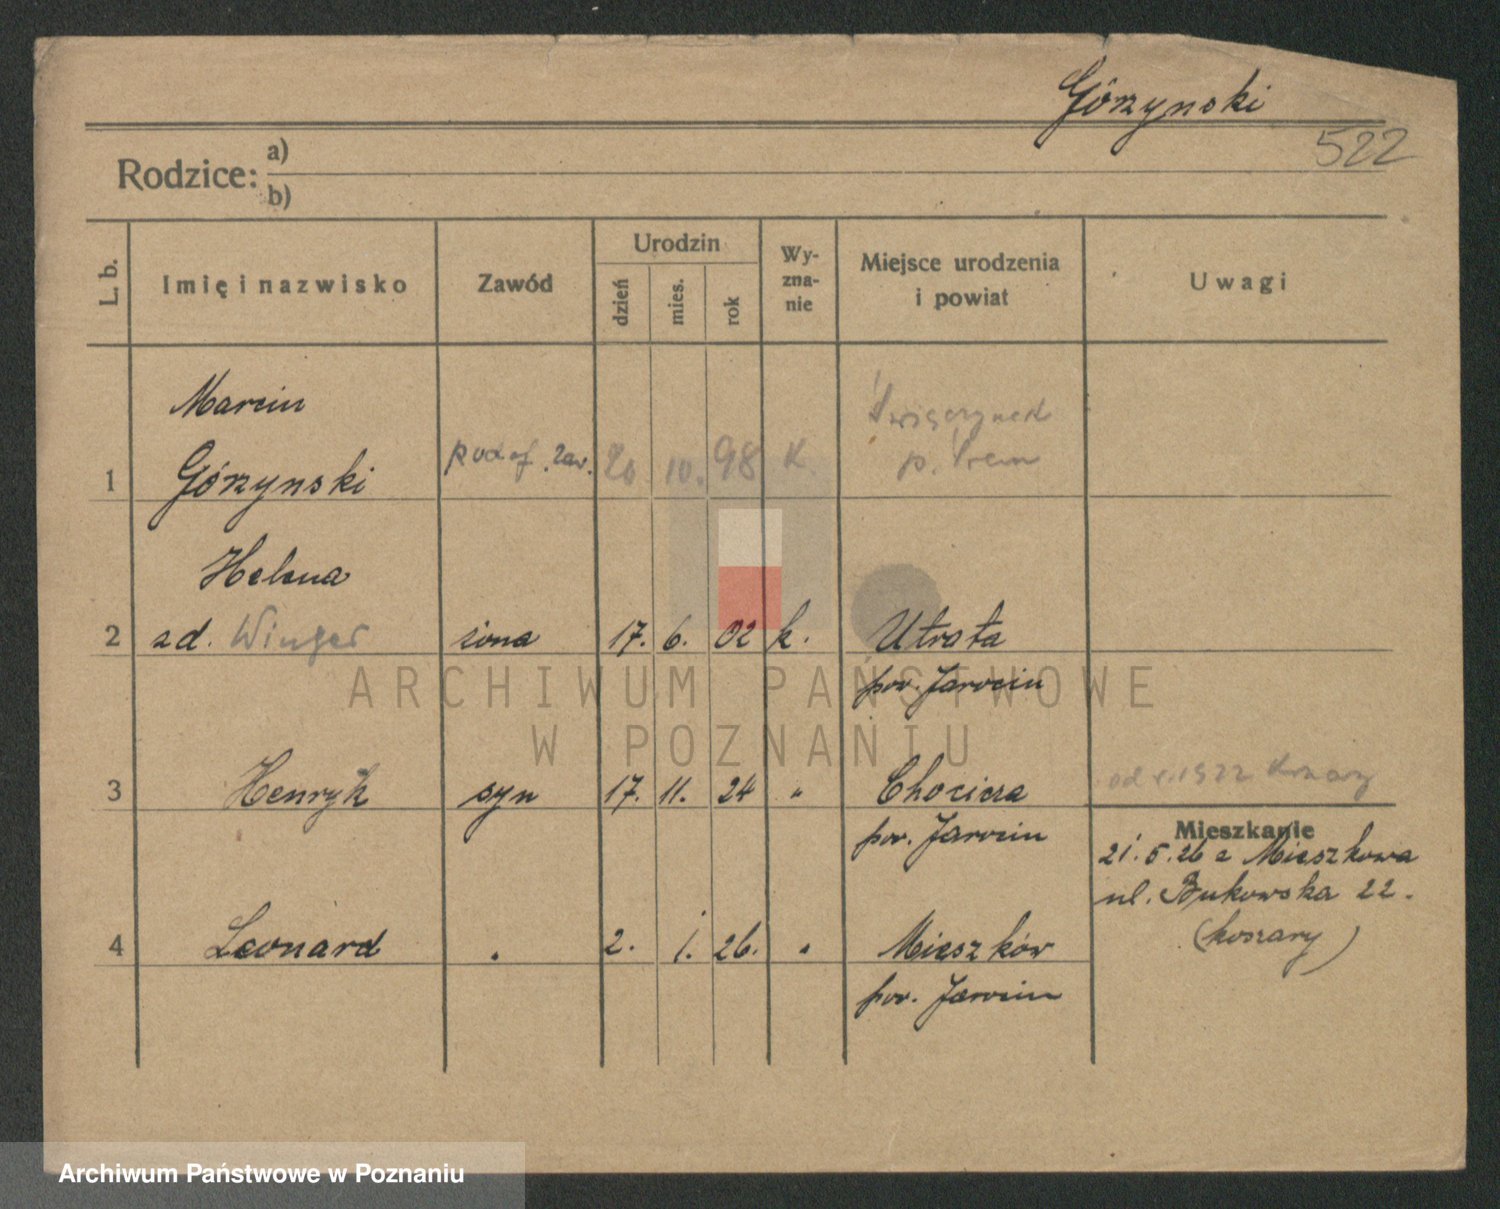 Górzynski
522
Rodzice: a)
b)
L. b.
Imię i nazwisko
Zawód
Urodzin
dzień
mies.
rok
Wy-
zna-
nie
Miejsce urodzenia
i powiat
Uwagi
Marcin
1 Górzynski podof. zaw. 20. 10. 98 K.
p. Śrem
Helena
2 zd. Winger żona 17. 6. 02 k. Utrata
pow. Jarocin
3 Henryk syn 17. 11. 24 " Chocicza
pow. Jarocin
od r. 1922
Mieszkanie
21. 5. 26 z Mieszkowa
ul. Bukowska 22.
(koszary)
4 Leonard " 2. 1. 26. " Mieszków
pow. Jarocin
ARCHIWUM PAŃSTWOWE
W POZNANIU
Archiwum Państwowe w Poznaniu